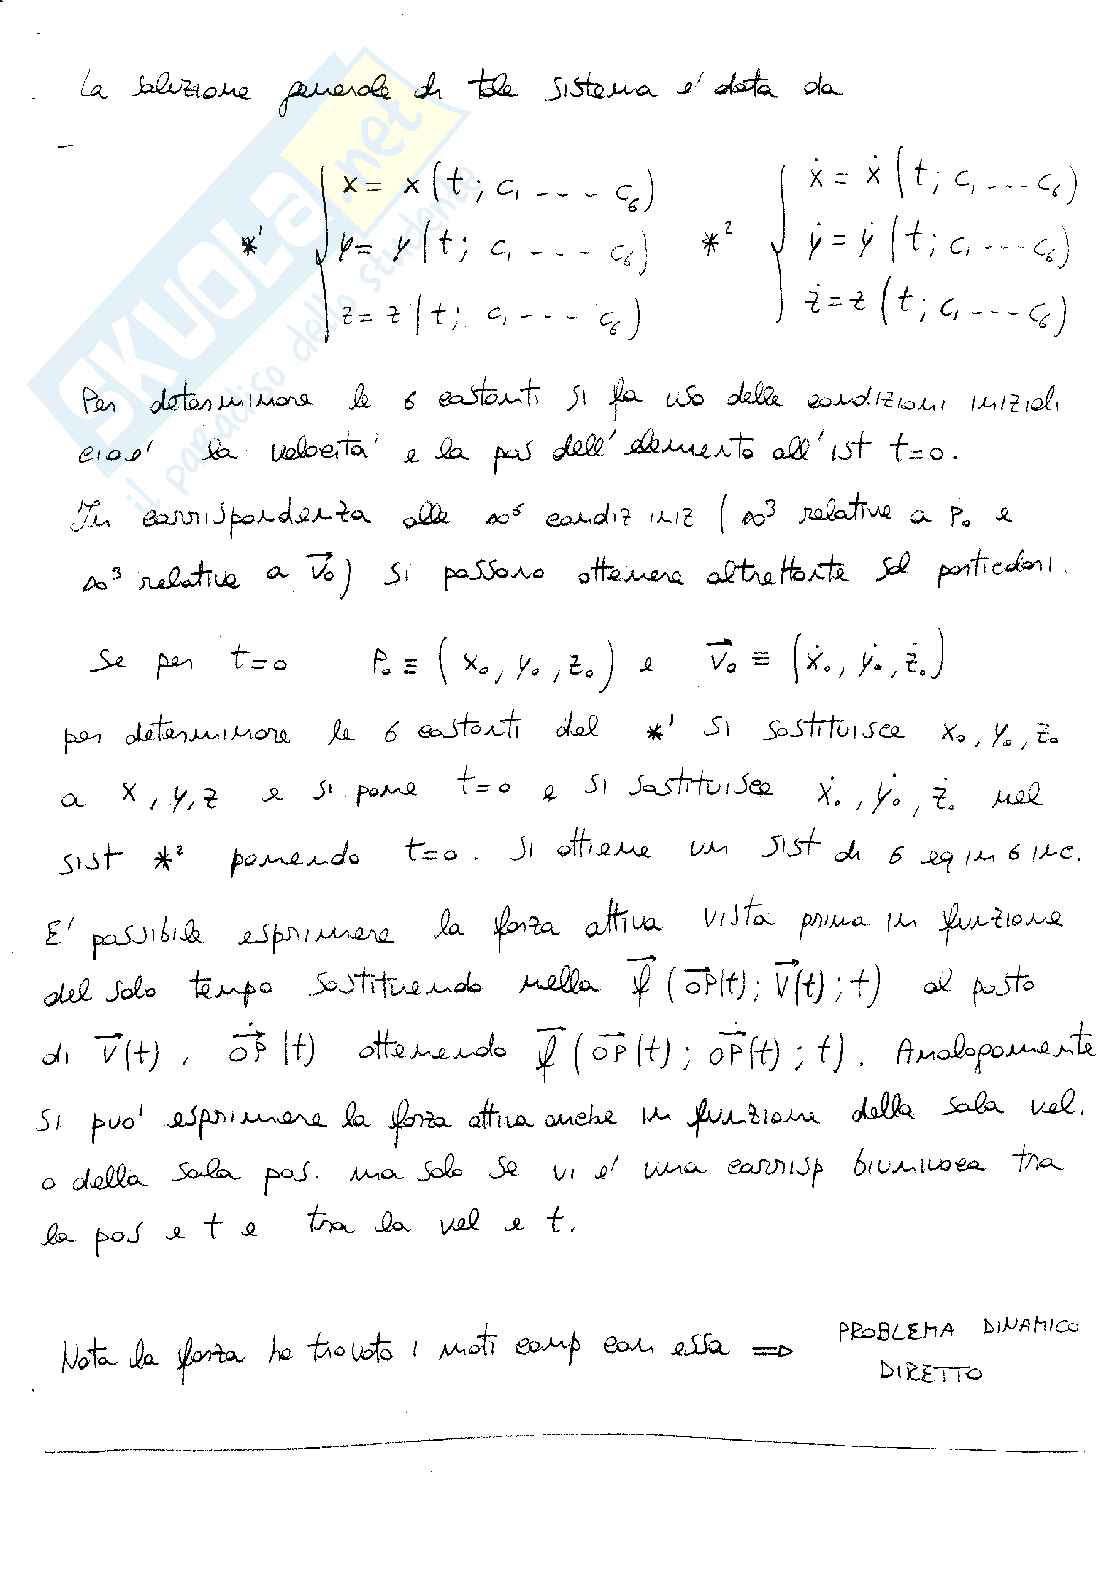 La soluzione generale di tale sistema e' data da
*¹ { x = x (t; c₁ ---- c₆)   *² { ẋ = ẋ (t; c₁ ... c₆)
y = y (t; c₁ - - - c₆)   ẏ = ẏ (t; c₁ --- c₆)
z = z (t; c₁ - - - c₆)   ż = ż (t; c₁ --- c₆)
Per determinare le 6 costanti si fa uso delle condizioni iniziali
cioe' la velocita' e la pos dell'elemento all'ist t=0.
In corrispondenza alle ∞⁶ condiz iniz (∞³ relative a P₀ e
∞³ relative a v⃗₀) si possono ottenere altrettante sol particolari.
Se per t=0   P₀ ≡ (x₀, y₀, z₀) e v⃗₀ ≡ (ẋ₀, ẏ₀, ż₀)
per determinare le 6 costanti del *¹ si sostituisce x₀, y₀, z₀
a x, y, z e si pone t=0 e si sostituisce ẋ₀, ẏ₀, ż₀ nel
sist *² ponendo t=0. Si ottiene un sist di 6 eq in 6 inc.
E' possibile esprimere la forza attiva vista prima in funzione
del solo tempo sostituendo nella f⃗ (OP⃗(t); v⃗(t); t) al posto
di v⃗(t), OP⃗̇(t) ottenendo f⃗ (OP⃗(t); OP⃗̇(t); t). Analogamente
si puo' esprimere la forza attiva anche in funzione della sola vel.
o della sola pos. ma solo se vi e' una corrisp biunivoca tra
la pos e t e tra la vel e t.
Nota la forza ho trovato i moti comp con essa ⇒ PROBLEMA DINAMICO
DIRETTO
SKUOLA.net
il paradiso dello studente